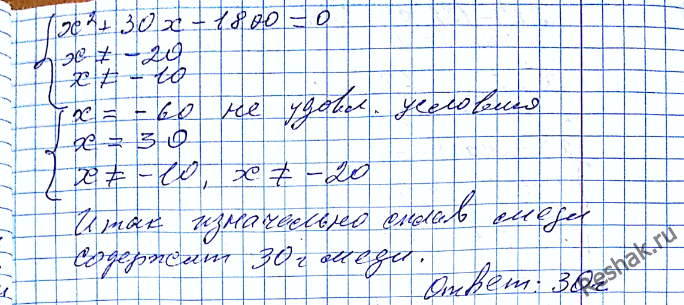 x² + 30x - 1800 = 0
x ≠ -20
x ≠ -10
x = -60 не удовл. условия
x = 30
x ≠ -10, x ≠ -20
Итак изначально сплав меди
содержит 30 г меди.
Ответ: 30г
Reshak.ru